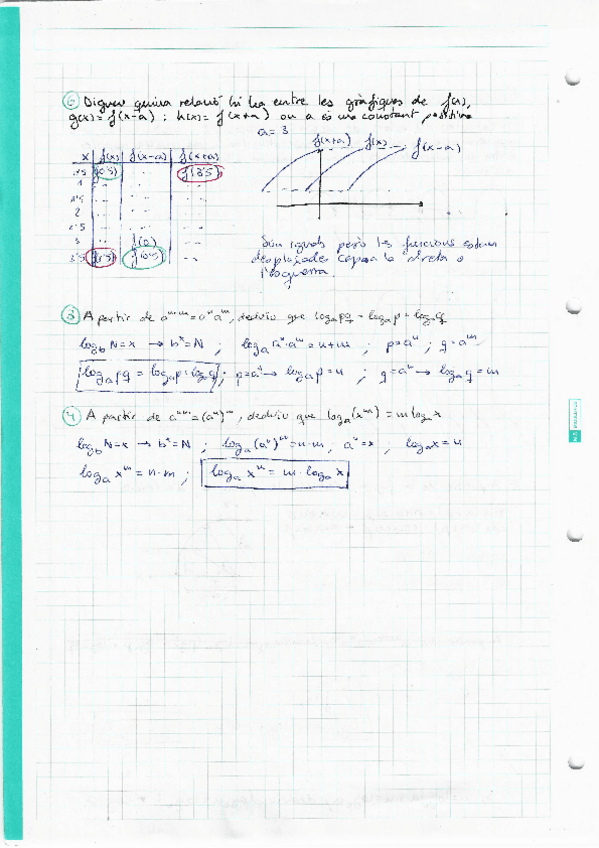 6 Digueu quina relació hi ha entre les gràfiques de f(x),
g(x) = f(x-a) i h(x) = f(x+a) on a és una constant positiva
a = 3
x f(x) f(x-a) f(x+a)
f(x+a) f(x) f(x-a)
0'5 f(0'5) .. f(3'5)
1 .. .. ..
1'5 .. .. ..
2 .. .. ..
2'5 .. .. ..
3 .. f(0) ..
3'5 f(3'5) f(0'5) ..
Són iguals però les funcions estan
desplaçades cap a la dreta o
l'esquerra
3 A partir de aⁿ⁺ᵐ = aⁿ aᵐ, deduiu que logₐ pq = logₐ p + logₐ q
log_b N = x → bˣ = N ; logₐ aⁿ·aᵐ = n+m ; p = aⁿ ; q = aᵐ
logₐ pq = logₐ p + logₐ q ; p = aⁿ → logₐ p = n ; q = aᵐ → logₐ q = m
4 A partir de aⁿ·ᵐ = (aⁿ)ᵐ, deduiu que logₐ(xᵐ) = m logₐ x
log_b N = x → bˣ = N ; logₐ (aⁿ)ᵐ = n·m ; aⁿ = x ; logₐ x = n
logₐ xᵐ = n·m ; logₐ xᵐ = m · logₐ x